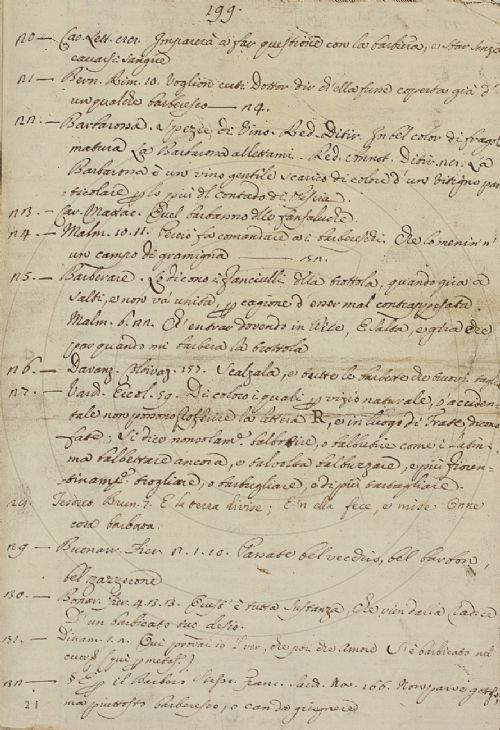 199.
120 — Car. Lett. Imparerà a far questione con la barbiera, e star senza
cavarsi sangue
121 — Bern. Rim. 10. Voglion certi Dottor dir ch'ella fusse coperta già d'
un qualche barberesco — 124.
122. — Barbarossa. Spezie di Vino. Red. Ditir. In bel color di fragola
matura La Barbarossa allettami. Red. annot. Ditir. La
Barbarossa è un vino gentile scarico di colore d'un vitigno par-
ticolare per lo più del contado di Pescia.
123. — Car. Mattac. Quel barbanno delle fanfaluche.
124. — Malm. 10. 11. fa comandare a i barbereschi, Che lo menin 'n
un campo di gramigna
125. — Barberare. Lo dicono i fanciulli della trottola, quando gira a
salti, e non va unita, per cagione d'esser mal contrappesata.
Malm. 6. Ch'entrar dovendo in
par quando mi barbera la trottola
126. — Davanz. Coltivaz. 157. Scalzala, e tutte le barbate
127. — Vard. Ercol. 59. Di coloro i quali per vizio naturale, o acciden-
tale non possono profferire la lettera R, e in luogo di Frate, dicono
Fate; si dice non solam. balbotire, o balbutire come i Latini
ma balbettare ancora, e talvolta balbuzzare, e più fioren-
tinam. trogliare, o barbugliare, o di più barbagliare.
129. Tesoret. Brun. 7. E la terra divise; E 'n ella fece, e mise Onne
cosa barbata.
129 — Buonar. Fier. 1. 10. Passate bel vecchio, bel barbon,
bel zazzerone
130. — Bonar. Fier. 4. 13. Quest'è tutta sustanza, Che vien dalla radice
D'un barbicato tuo desio.
131. — Qui provai io l ver, che poi che Amore S'è barbicato nel
cuore
132 — § E per il Barbero. Franc. Sacch. Nov. 166. Non parve gottoso,
ma piuttosto barberesco, o can da giugnere
21